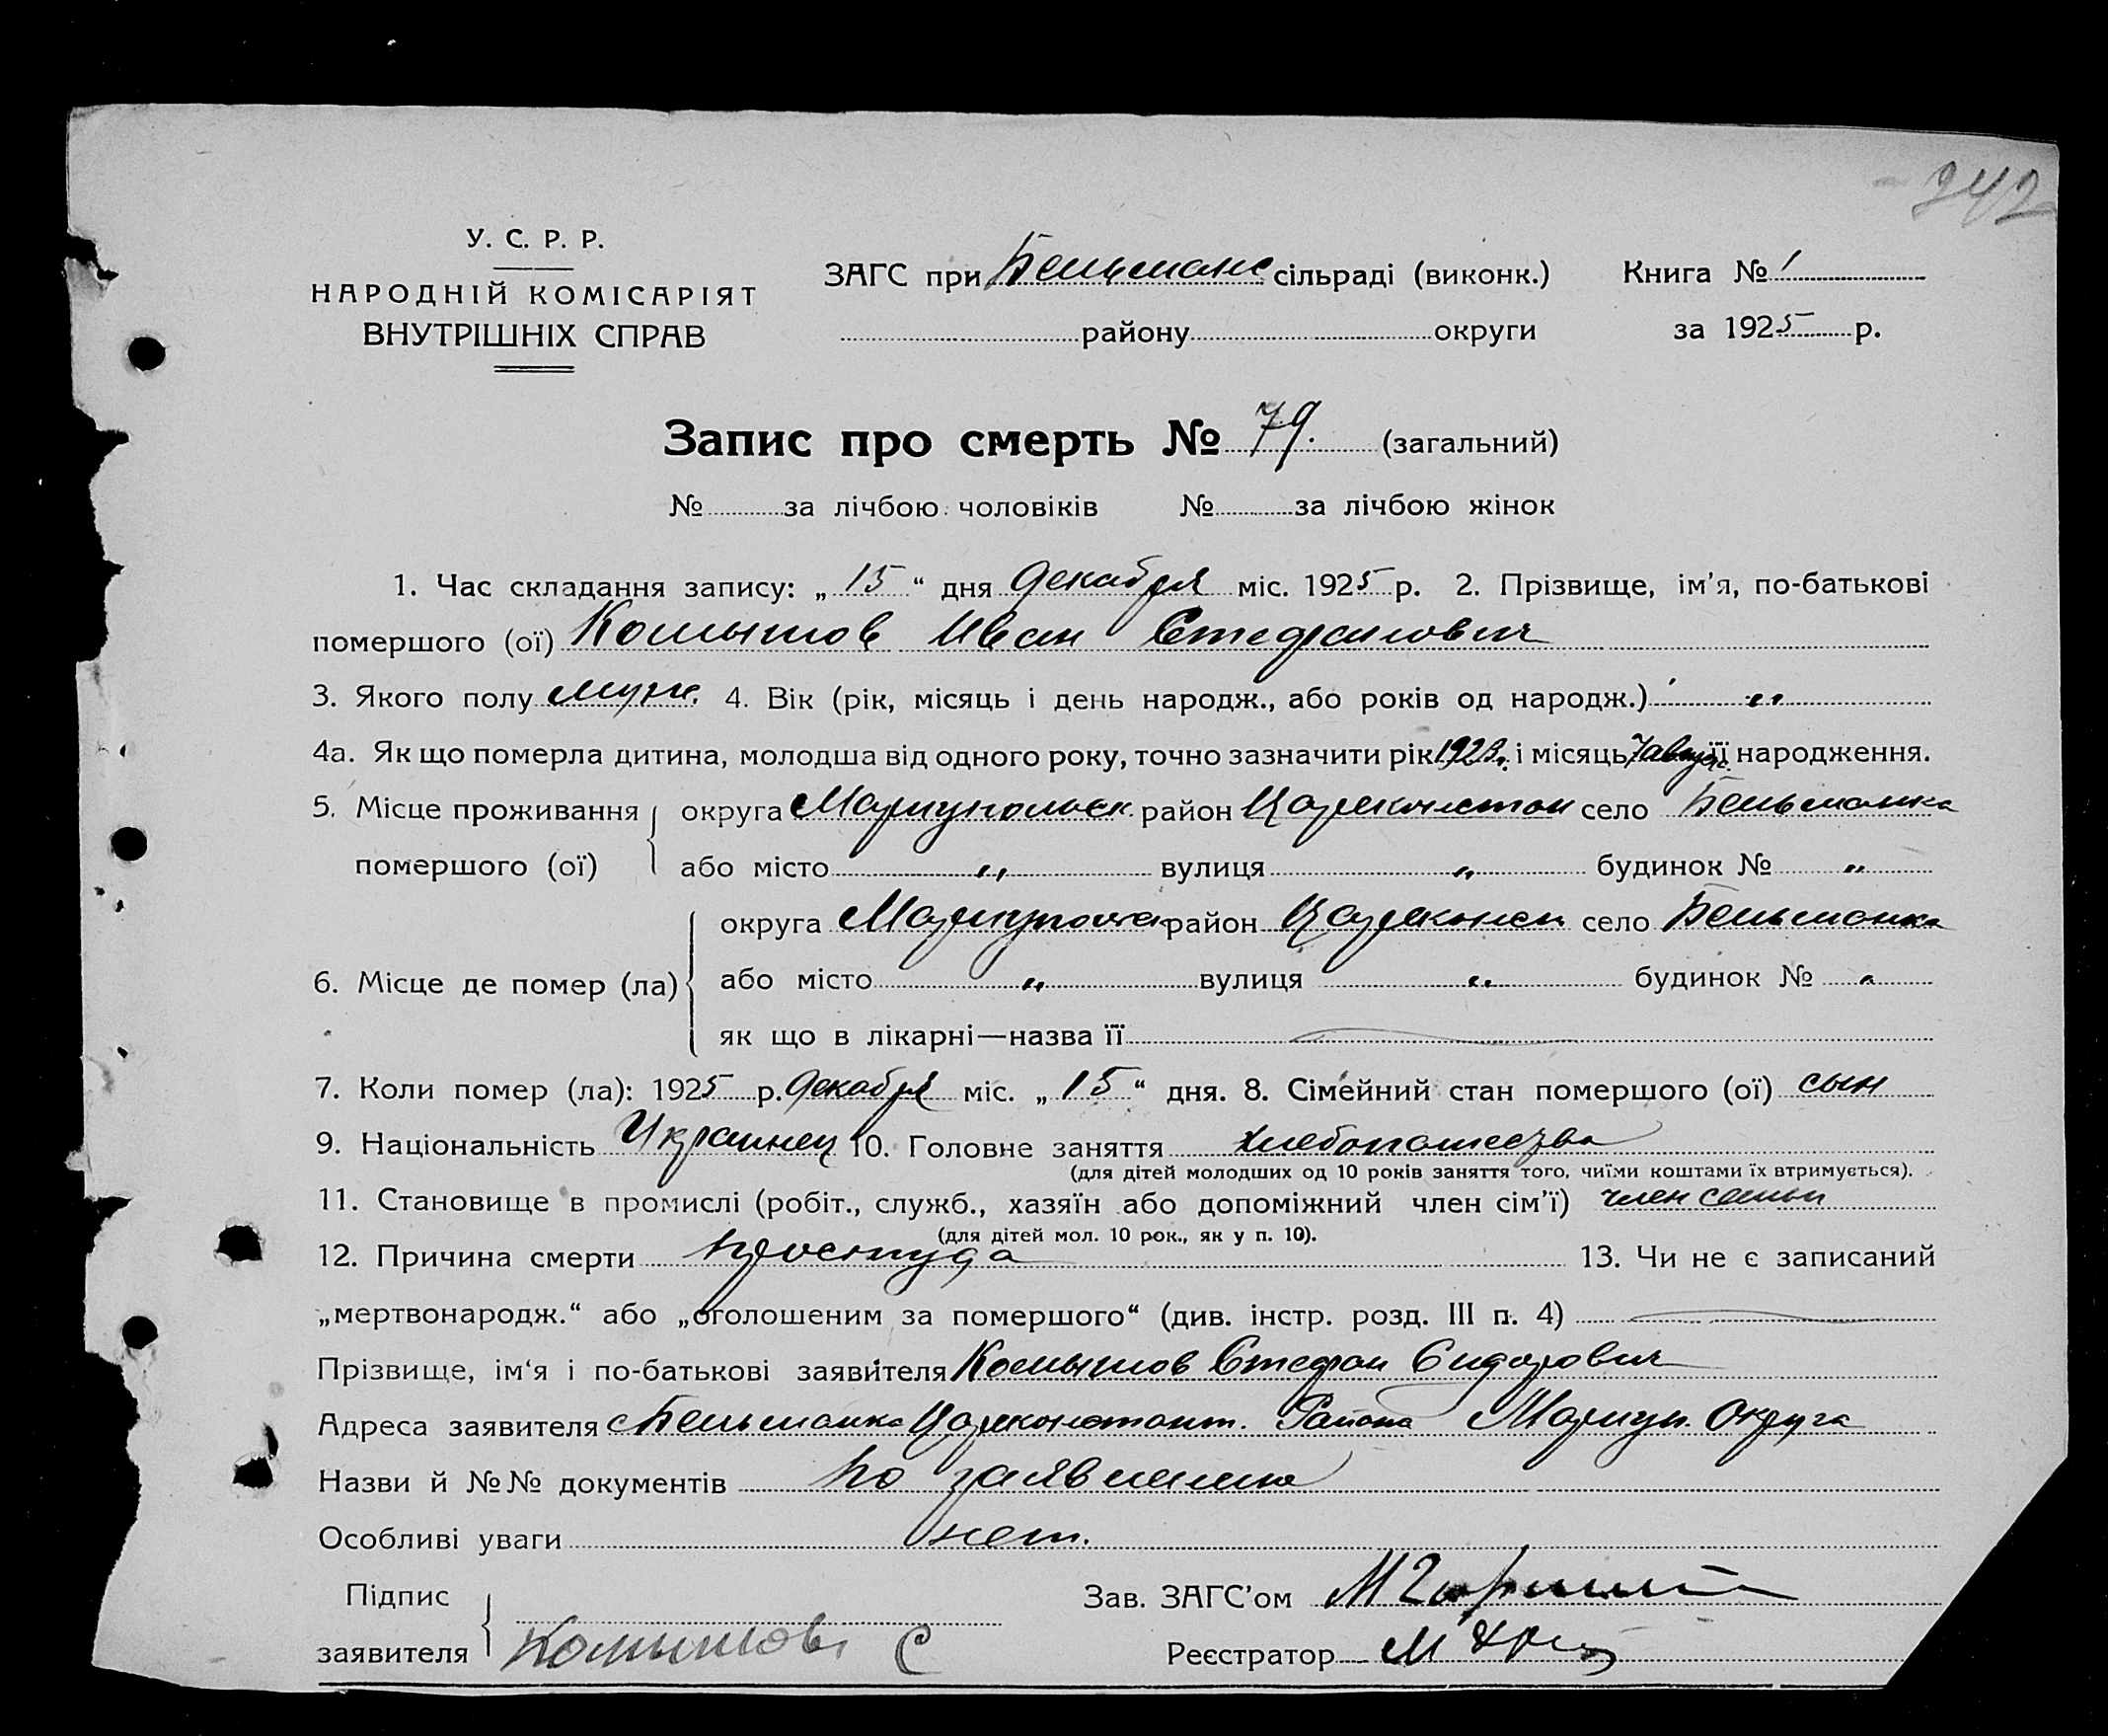 242
У. С. Р. Р.
НАРОДНІЙ КОМІСАРІЯТ
ВНУТРІШНІХ СПРАВ
ЗАГС при Бельманс сільраді (виконк.) Книга № 1
району округи за 1925 р.
Запис про смерть № 79. (загальний)
№ за лічбою чоловіків № за лічбою жінок
1. Час складання запису: „ 15 “ дня декабря міс. 1925 р. 2. Прізвище, ім’я, по-батькові
помершого (ої) Комышов Иван Стефанович
3. Якого полу муж. 4. Вік (рік, місяць і день народж., або років од народж.) „
4а. Як що померла дитина, молодша від одного року, точно зазначити рік і місяць її народження.
5. Місце проживання округа Мариупольск. район Цареконстан село Бельманка
помершого (ої) або місто „ вулиця „ будинок № „
округа район село Бельманка
6. Місце де помер (ла) або місто „ вулиця „ будинок № „
як що в лікарні—назва її
7. Коли помер (ла): 1925 р. декабря міс. „ 15 “ дня. 8. Сімейний стан помершого (ої) сын
9. Національність Украинец 10. Головне заняття
(для дітей молодших од 10 років заняття того, чиїми коштами їх втримується).
11. Становище в промислі (робіт., служб., хазяїн або допоміжний член сім’ї) член семьи
(для дітей мол. 10 рок., як у п. 10).
12. Причина смерти простуда 13. Чи не є записаний
„мертвонародж.“ або „оголошеним за помершого“ (див. інстр. розд. III п. 4)
Прізвище, ім‘я і по-батькові заявителя Комышов Стефан Сидорович
Адреса заявителя с Бельманка Цареконстант. Района Мариуп. Округа
Назви й №№ документів по заявлению
Особливі уваги нет.
Підпис Зав. ЗАГС’ом
заявителя Комышов С Реєстратор